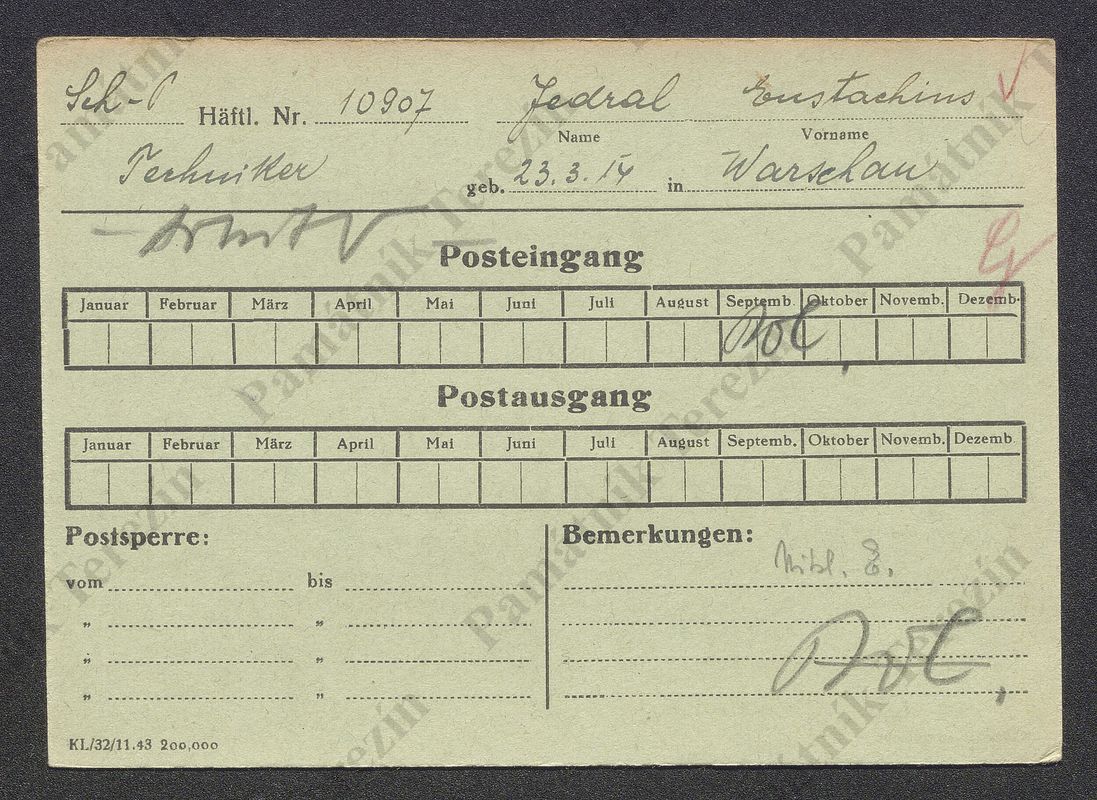 Sch-P Häftl. Nr. 10907 Jedral Eustachius
Name Vorname
Techniker geb. 23.3.14 in Warschau
Posteingang
Januar Februar März April Mai Juni Juli August Septemb. Oktober Novemb. Dezemb.
Postausgang
Januar Februar März April Mai Juni Juli August Septemb. Oktober Novemb. Dezemb.
Postsperre: Bemerkungen:
vom bis
„ „
„ „
„ „
KL/32/11.43 200,000
Památník Terezín